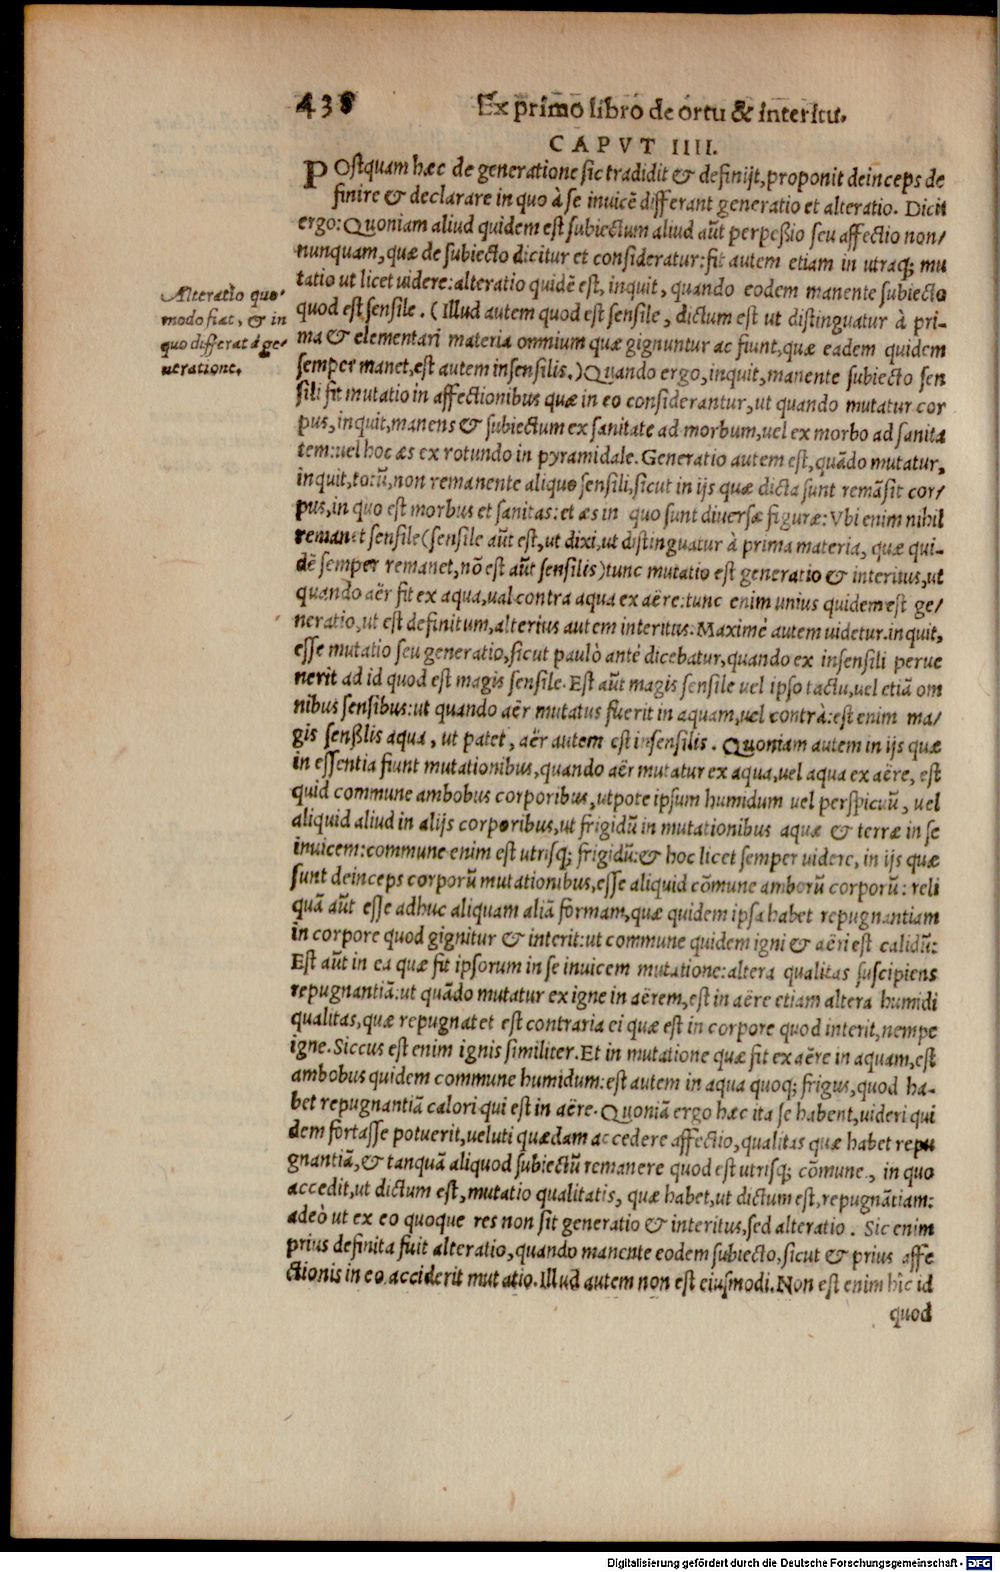 438 Ex primo libro de ortu & interitu.
CAPVT IIII.
POstquam hæc de generatione sic tradidit & definijt, proponit deinceps de
finire & declarare in quo à se inuicē differant generatio et alteratio. Dicit
ergo: Quoniam aliud quidem est subiectum aliud aūt perpeßio seu affectio non/
nunquam, quæ de subiecto dicitur et consideratur: fit autem etiam in utraq; mu
tatio ut licet uidere: alteratio quidē est, inquit, quando eodem manente subiecto
quod est sensile. (Illud autem quod est sensile, dictum est ut distinguatur à pri-
ma & elementari materia omnium quæ gignuntur ac fiunt, quæ eadem quidem
semper manet, est autem insensilis.) Quando ergo, inquit, manente subiecto sen
sili fit mutatio in affectionibus quæ in eo considerantur, ut quando mutatur cor
pus, inquit, manens & subiectum ex sanitate ad morbum, uel ex morbo ad sanita
tem: uel hoc æs ex rotundo in pyramidale. Generatio autem est, quādo mutatur,
inquit, totū, non remanente aliquo sensili, sicut in ijs quæ dicta sunt remāsit cor/
pus, in quo est morbus et sanitas: et æs in quo sunt diuersæ figuræ: Vbi enim nihil
remanet sensile (sensile aūt est, ut dixi, ut distinguatur à prima materia, quæ qui-
dē semper remanet, nō est aūt sensilis) tunc mutatio est generatio & interitus, ut
quando aër fit ex aqua, ual contra aqua ex aëre: tunc enim unius quidem est ge/
neratio, ut est definitum, alterius autem interitus. Maximè autem uidetur. inquit,
esse mutatio seu generatio, sicut paulò antè dicebatur, quando ex insensili perue
nerit ad id quod est magis sensile. Est aūt magis sensile uel ipso tactu, uel etiā om
nibus sensibus: ut quando aër mutatus fuerit in aquam, uel contrà: est enim ma/
gis senßlis aqua, ut patet, aër autem est insensilis. Quoniam autem in ijs quæ
in essentia fiunt mutationibus, quando aër mutatur ex aqua, uel aqua ex aëre, est
quid commune ambobus corporibus, utpote ipsum humidum uel perspicuū, uel
aliquid aliud in alijs corporibus, ut frigidū in mutationibus aquæ & terræ in se
inuicem: commune enim est utrisq; frigidū: & hoc licet semper uidere, in ijs quæ
sunt deinceps corporū mutationibus, esse aliquid cōmune amborū corporū: reli
quā aūt esse adhuc aliquam aliā formam, quæ quidem ipsa habet repugnantiam
in corpore quod gignitur & interit: ut commune quidem igni & aëri est calidū:
Est aūt in ea quæ fit ipsorum in se inuicem mutatione: altera qualitas suscipiens
repugnantiā: ut quādo mutatur ex igne in aërem, est in aëre etiam altera humidi
qualitas, quæ repugnat et est contraria ei quæ est in corpore quod interit, nempe
igne. Siccus est enim ignis similiter. Et in mutatione quæ fit ex aëre in aquam, est
ambobus quidem commune humidum: est autem in aqua quoq; frigus, quod ha-
bet repugnantiā calori qui est in aëre. Quoniā ergo hæc ita se habent, uideri qui
dem fortasse potuerit, ueluti quædam accedere affectio, qualitas quæ habet repu
gnantiā, & tanquā aliquod subiectū remanere quod est utrisq; cōmune, in quo
accedit, ut dictum est, mutatio qualitatis, quæ habet, ut dictum est, repugnātiam:
adeò ut ex eo quoque res non sit generatio & interitus, sed alteratio. Sic enim
prius definita fuit alteratio, quando manente eodem subiecto, sicut & prius affe
ctionis in eo acciderit mutatio. Illud autem non est eiusmodi. Non est enim hîc id
quod
Alteratio quo-
modo fiat, & in
quo differat à ge/
neratione.
Digitalisierung gefördert durch die Deutsche Forschungsgemeinschaft - DFG